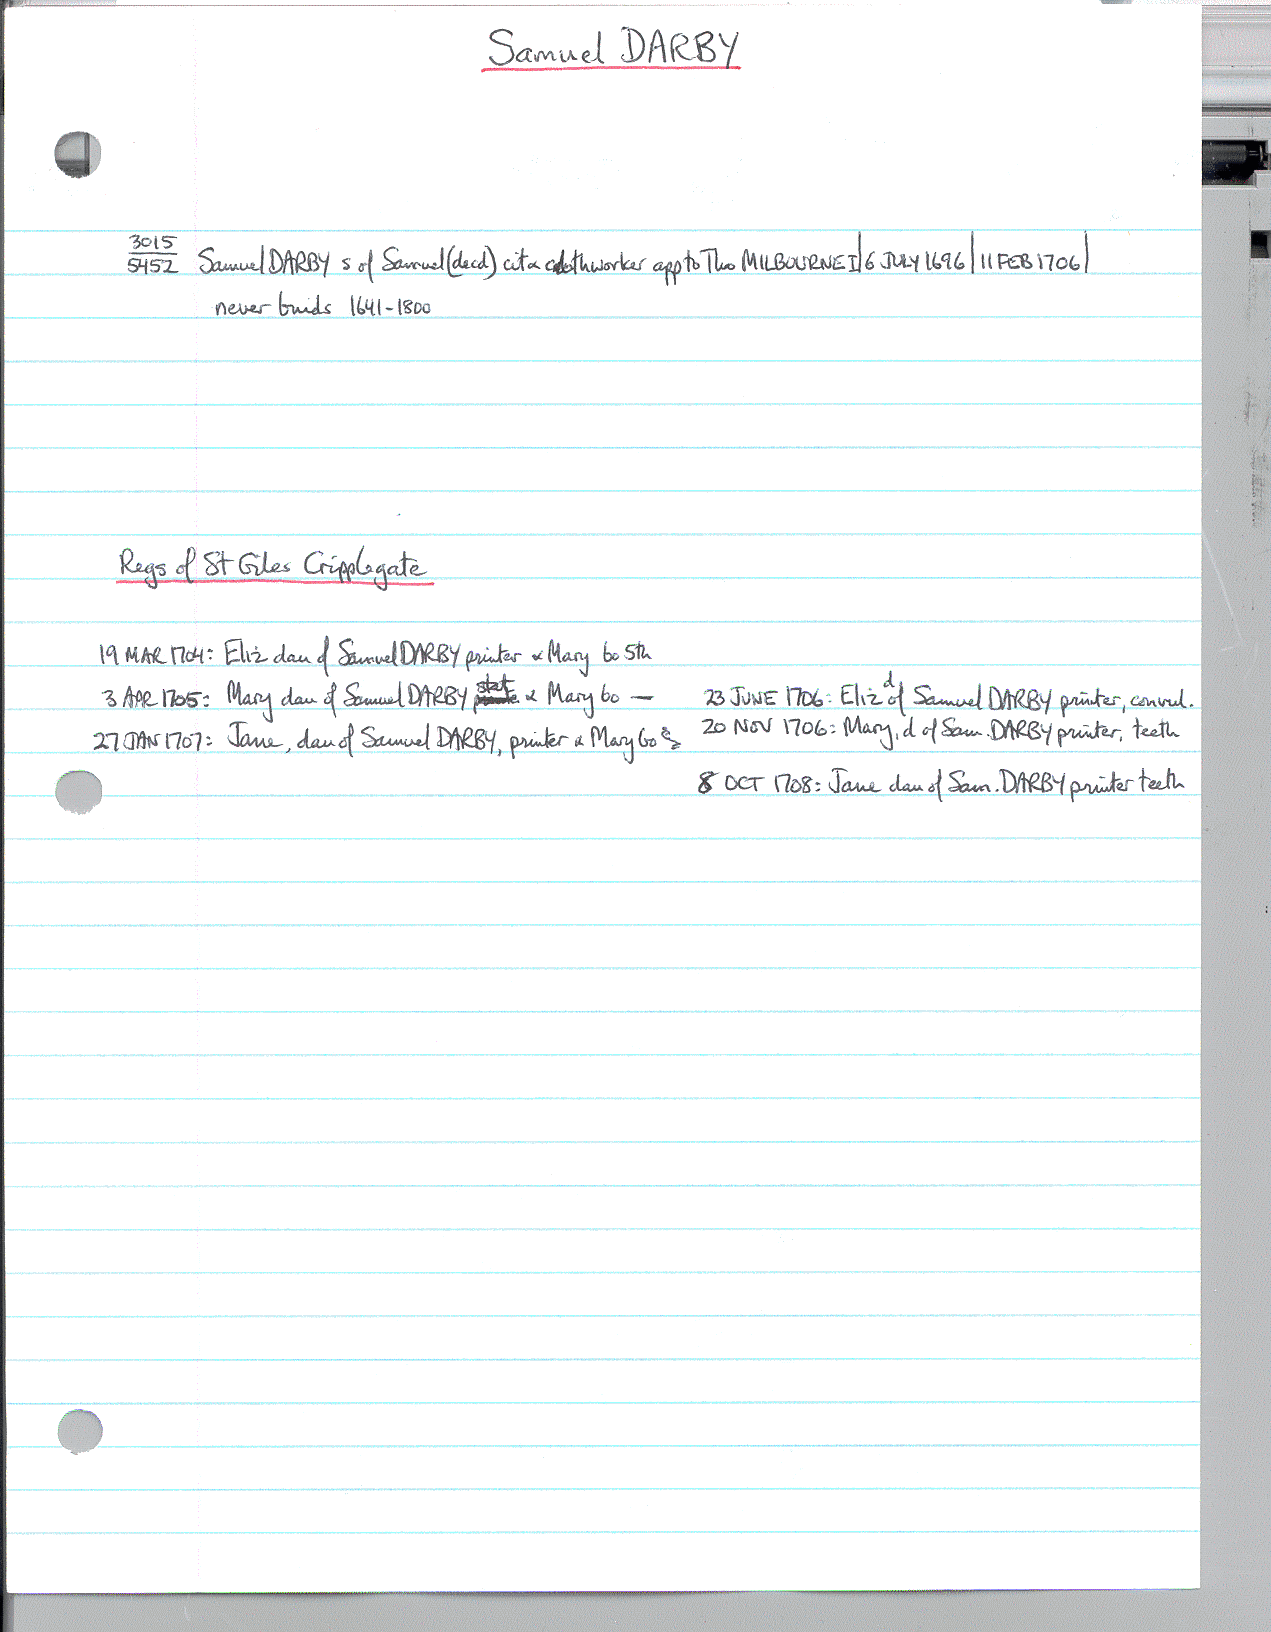 Samuel DARBY
3015
5452 Samuel DARBY s of Samuel (decd) cit & clothworker app to Tho MILBOURNE I | 6 JULY 1696 | 11 FEB 1706 |
never binds 1641-1800
Regs of St Giles Cripplegate
19 MAR 1704: Eliz dau of Samuel DARBY printer & Mary bo 5th
3 APR 1705: Mary dau of Samuel DARBY & Mary bo —
27 JAN 1707: Jane, dau of Samuel DARBY, printer & Mary bo
23 JUNE 1706: Eliz d of Samuel DARBY printer, convul.
20 NOV 1706: Mary, d of Sam. DARBY printer, teeth
8 OCT 1708: Jane dau of Sam. DARBY printer teeth